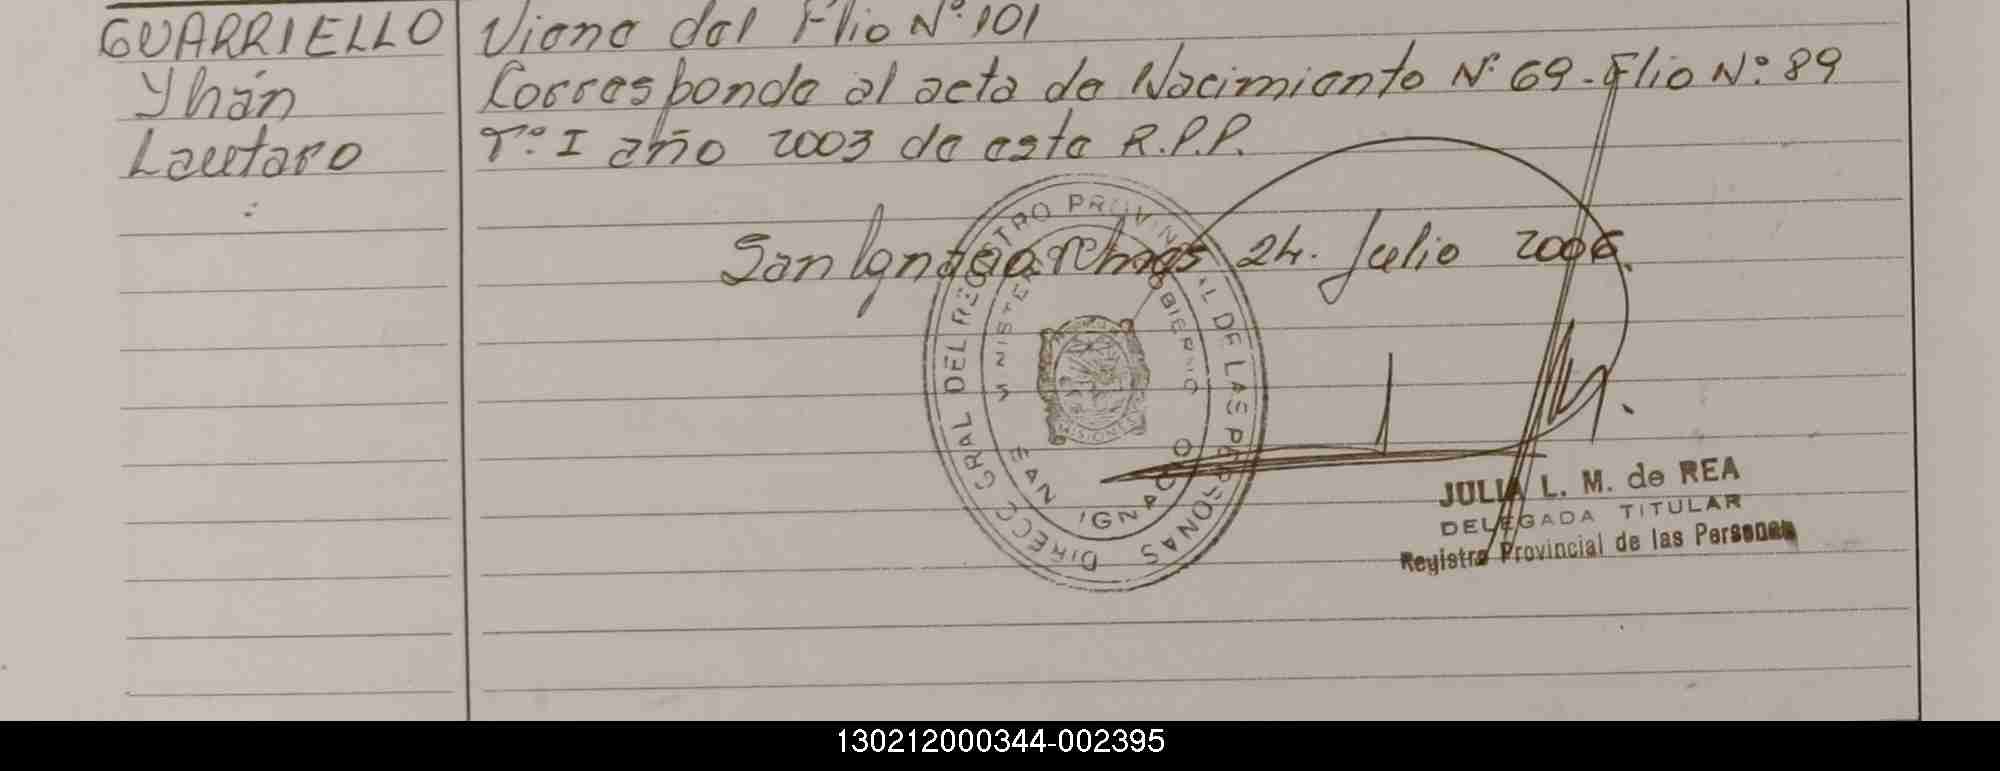 GUARRIELLO
Yhán
Lautaro
Viene del Flio Nº. 101
Corresponde al acta de Nacimiento Nº 69 - Flio Nº: 89
Tº. I año 2003 de este R.P.P.
San Ignacio Mnes 24. Julio 2006.
DIRECC GRAL DEL REGISTRO PROVINCIAL DE LAS PERSONAS
MINISTERIO GOBIERNO
MISIONES
SAN IGNACIO
JULIA L. M. de REA
DELEGADA TITULAR
Registro Provincial de las Personas
130212000344-002395